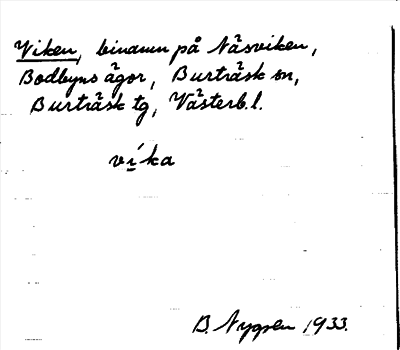 Viken, binamn på Näsviken,
Bodbyns ägor, Burträsk sn,
Burträsk tg, Västerb. l.
víka
B. Nygren 1933.